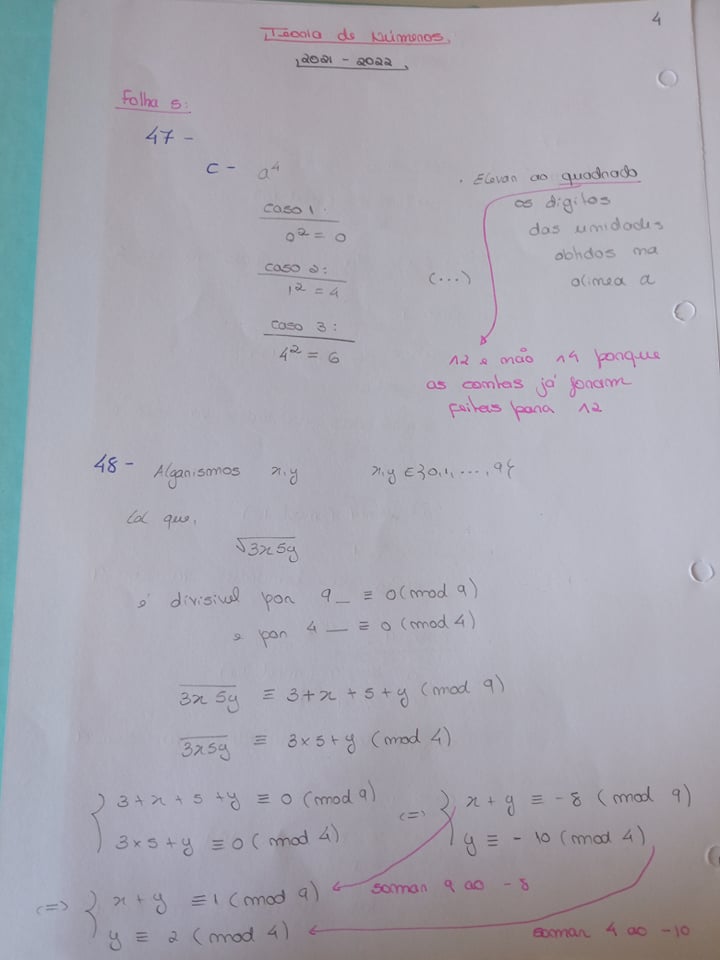 4
Teoria de Números
2021 - 2022
Folha 5:
47 -
c - a⁴
caso 1:
0² = 0
caso 2:
1² = 4
caso 3:
4² = 6
(...)
. Elevar ao quadrado
os digitos
das unidades
obtidos na
alinea a
12 e não 14 porque
as contas já foram
feitas para 12
48 - Algarismos x,y x,y ∈ }0,1,...,9{
tal que,
√3x5y
é divisivel por 9_ ≡ 0 (mod 9)
e por 4 _ ≡ 0 (mod 4)
3x5y ≡ 3 + x + 5 + y (mod 9)
3x5y ≡ 3 × 5 + y (mod 4)
{ 3 + x + 5 + y ≡ 0 (mod 9) <=> { x + y ≡ -8 (mod 9)
3 × 5 + y ≡ 0 (mod 4) y ≡ - 10 (mod 4)
<=> { x + y ≡ 1 (mod 9) somar 9 ao - 8
y ≡ 2 (mod 4) somar 4 ao -10